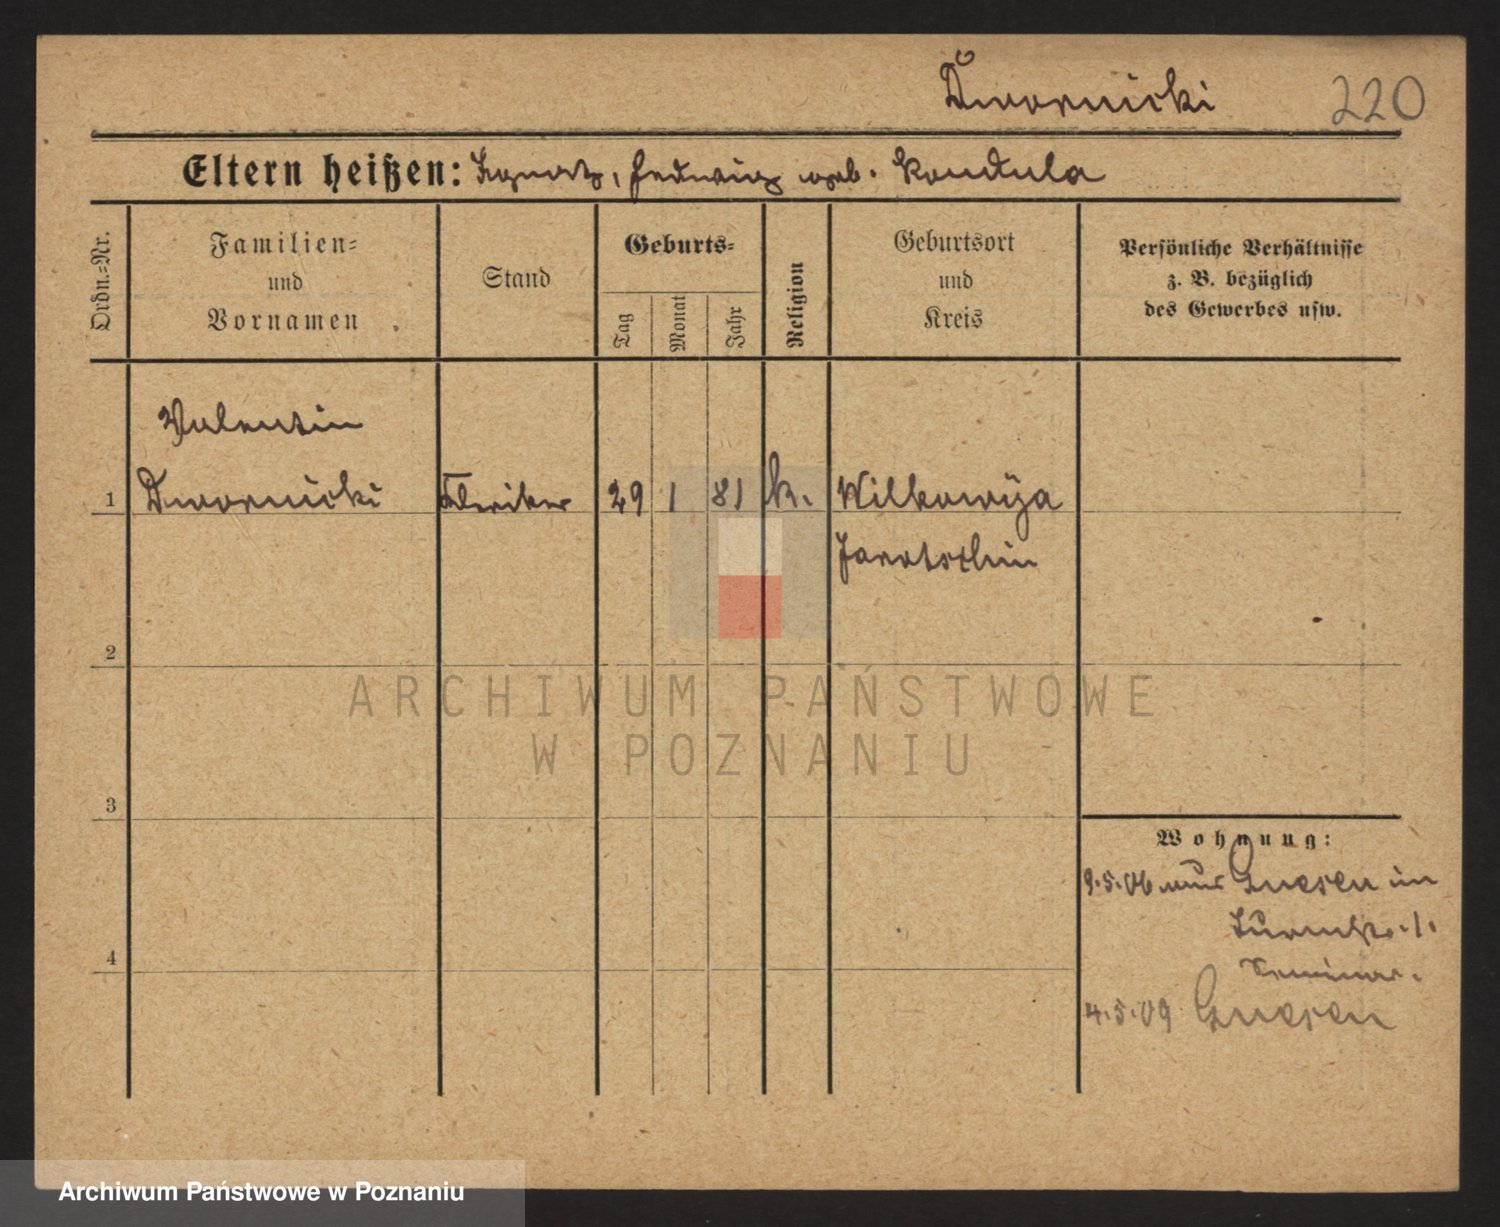 Dwornicki 220
Eltern heißen: Ignatz, Hedwig geb. Kondula
Ordn.=Nr.
Familien=
und
Vornamen
Stand
Geburts=
Tag
Monat
Jahr
Religion
Geburtsort
und
Kreis
Persönliche Verhältnisse
z. B. bezüglich
des Gewerbes usw.
Valentin
1 Dwornicki Kleriker 29 1 81 k. Wilkowyja
Jarotschin
2
ARCHIWUM PAŃSTWOWE
W POZNANIU
3
Wohnung:
9.5.06 Gnesen im
Seminar.
4
4.5.09 Gnesen
Archiwum Państwowe w Poznaniu